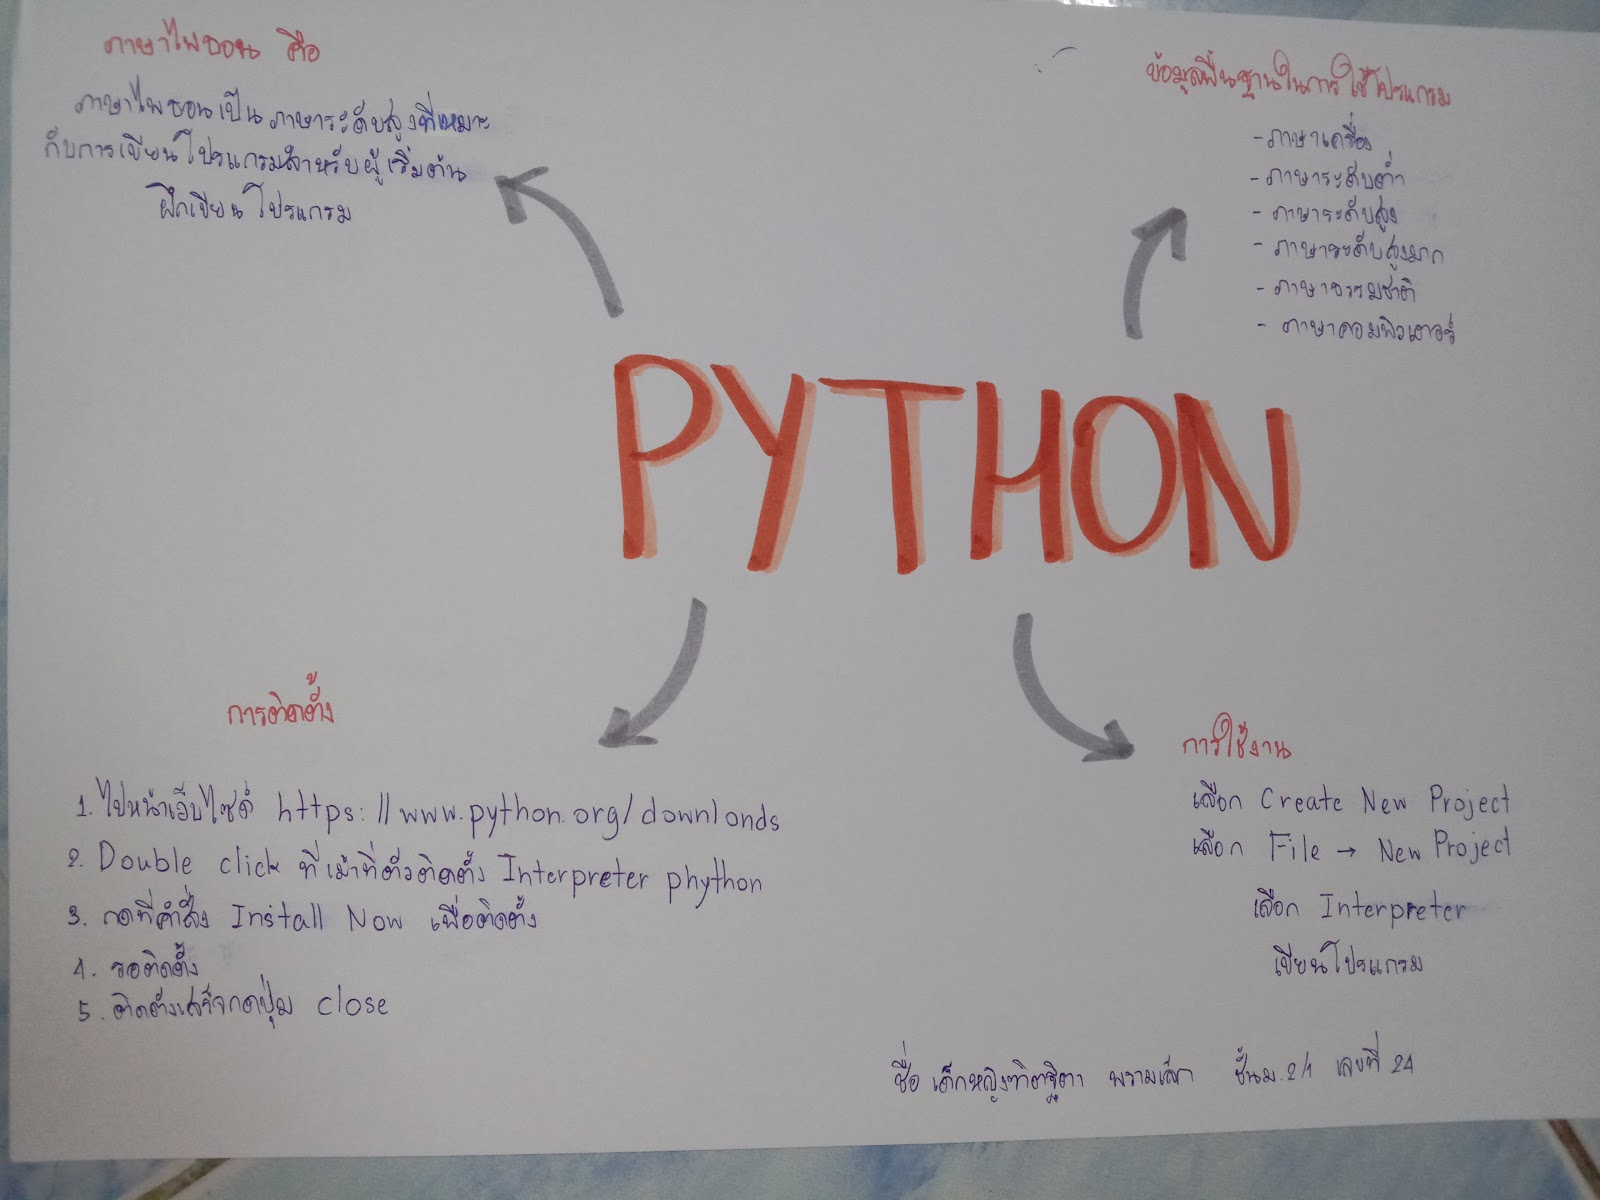 ภาษาไพธอน คือ
ภาษาไพธอนเป็นภาษาระดับสูงที่เหมาะ
กับการเขียนโปรแกรมสำหรับผู้เริ่มต้น
ฝึกเขียนโปรแกรม
ข้อมูลพื้นฐานในการใช้โปรแกรม
- ภาษาเครื่อง
- ภาษาระดับต่ำ
- ภาษาระดับสูง
- ภาษาระดับสูงมาก
- ภาษาธรรมชาติ
- ภาษาคอมพิวเตอร์
PYTHON
การติดตั้ง
1. ไปหน้าเว็บไซต์ https://www.python.org/downlonds
2. Double click ที่เม้าที่ตัวติดตั้ง Interpreter phython
3. กดที่คำสั่ง Install Now เพื่อติดตั้ง
4. รอติดตั้ง
5. ติดตั้งเสร็จกดปุ่ม close
การใช้งาน
เลือก Create New Project
เลือก File → New Project
เลือก Interpreter
เขียนโปรแกรม
ชื่อ เด็กหญิง พรามเล็ก ชั้นม.2/1 เลขที่ 24